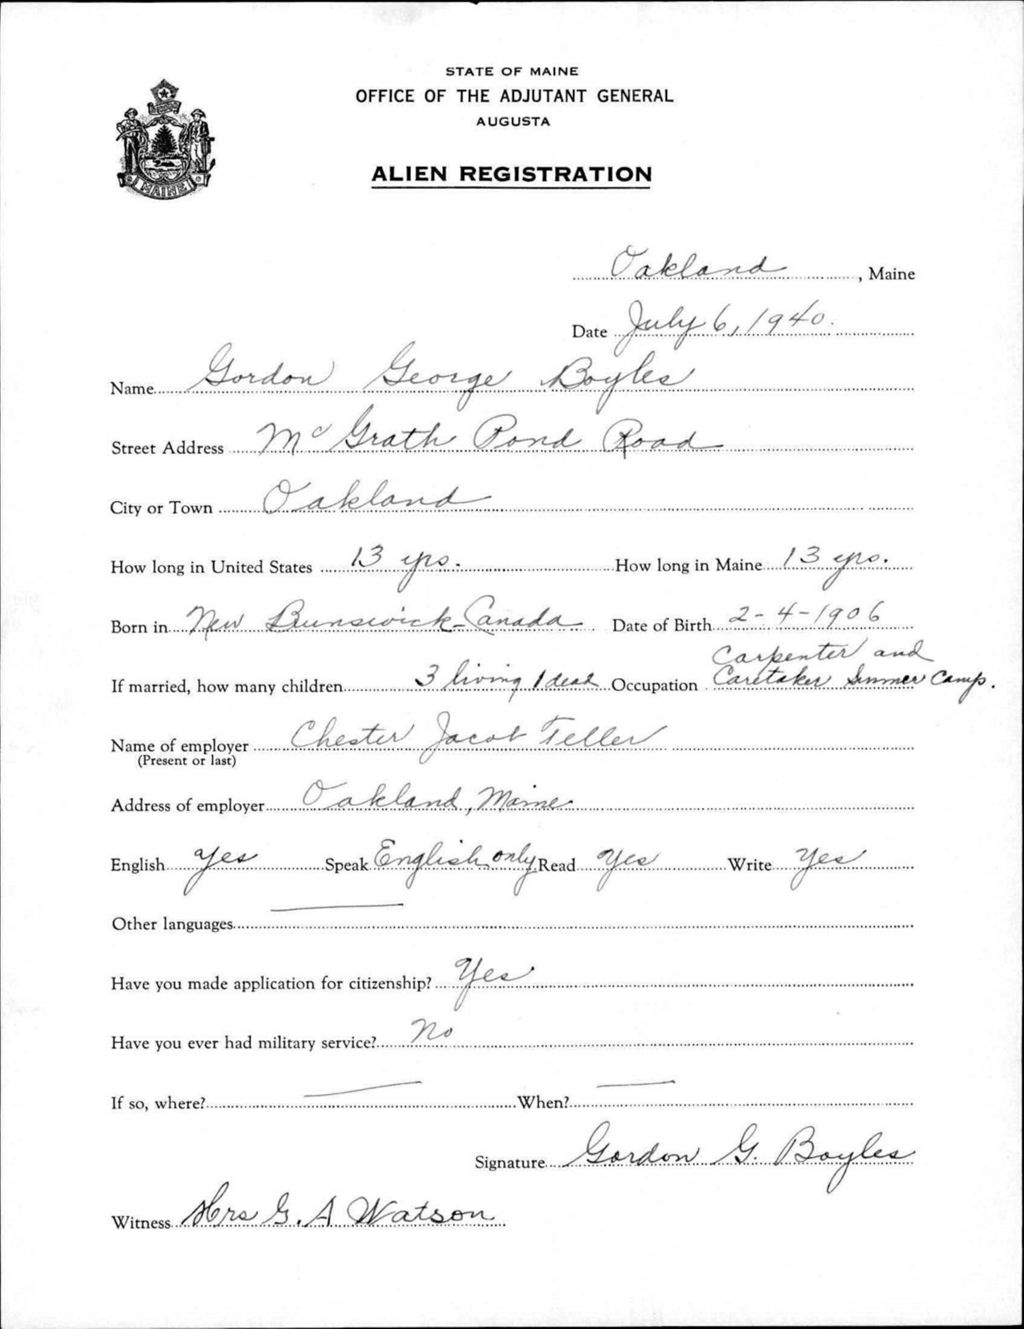 STATE OF MAINE
OFFICE OF THE ADJUTANT GENERAL
AUGUSTA
ALIEN REGISTRATION
MAINE
Oakland, Maine
Date July 6, 1940.
Name Gordon George Boyles
Street Address Mc Grath Pond Road
City or Town Oakland
How long in United States 13 yrs. How long in Maine 13 yrs.
Born in New Brunswick-Canada Date of Birth 2-4-1906
If married, how many children 3 living 1 dead Occupation Carpenter and Caretaker Summer Camp.
Name of employer Chester Jacob Teller
(Present or last)
Address of employer Oakland, Maine
English Yes Speak English only Read Yes Write Yes
Other languages —
Have you made application for citizenship? Yes
Have you ever had military service? No
If so, where? — When? —
Signature Gordon G. Boyles
Witness Mrs G. A Watson